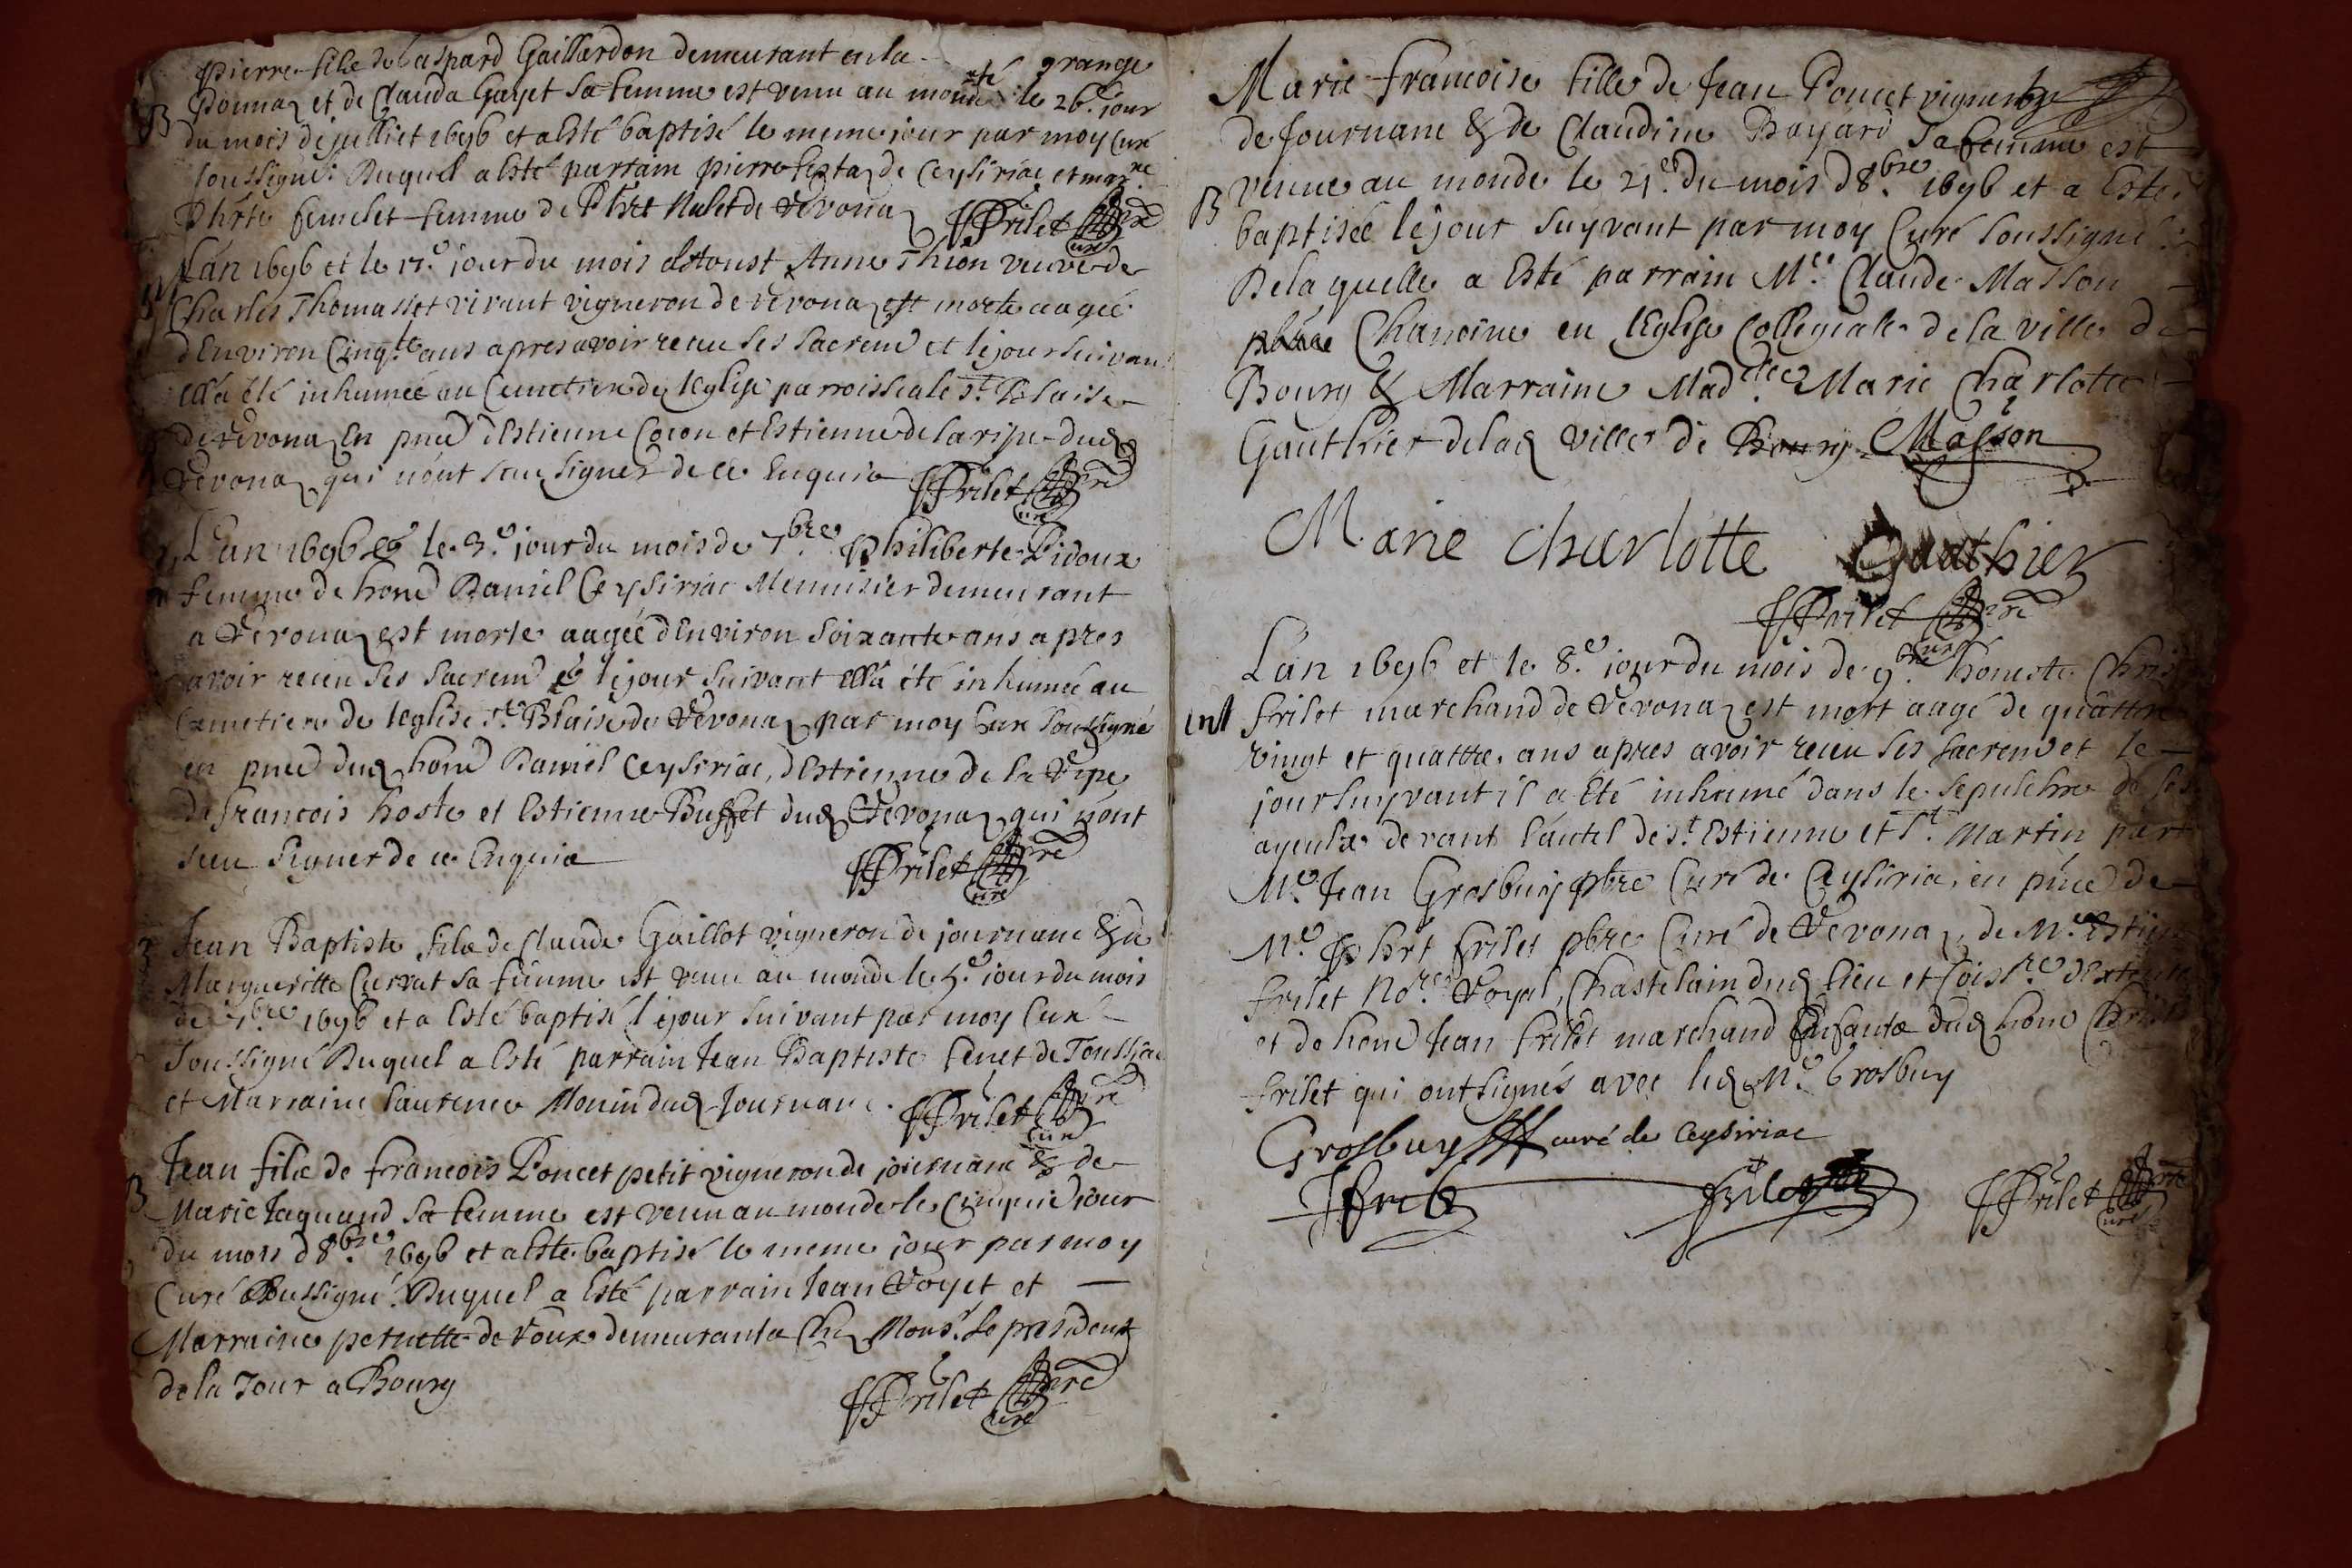 pierre fils de Gaspard Gaillardon demeurant en la grange
B Donnaz et de Clauda Gayet sa femme est venu au monde le 26.e jour
du mois de juilliet 1696 et a esté baptisé le meme jour par moy Curé
soussigné. Duquel a esté parrain pierre de Ceysiriac et
femelet femme de de Vevonaz pFrilet ptre Curé
L'an 1696 et le jour du mois d'Aoust Anne Thion veuve de
Charles Thomasset vivant vigneron de vevonaz est morte aagée
d'Environ Cinq.te ans apres avoir receu ses sacremd et le jour suivant
ell'a été inhumée au Cemetiere de l'eglise parroissiale st. Blaise
de Vevonaz En pnce d'Estienne Cocon et Estienne de la ripe dud
Vevonaz qui n'ont sceu signer de ce Enquis pFrilet ptre Curé
L'an 1696 & le 3.e jour du mois de 7.bre Philiberte Pidoux
femme de hond Daniel Ceysiriac Menuisier demeurant
a Vevonaz est morte aagée d'Environ soixante ans apres
avoir receu ses sacremd & le jour suivant ell'a été inhumée au
Cemetiere de leglise st. Blaise de Vevonaz par moy Curé soussigné
en pnce dud hond Daniel Ceysiriac, d'Estienne de la Ripe
de francois hoste et Estienne Buffet dud Vevonaz qui n'ont
sceu signer de ce Enquis pFrilet ptre Curé
Jean Baptiste fils de Claude Gaillot vigneron de journanc & de
Margueritte Currat sa femme est venu au monde le 5.e jour du mois
de 7.bre 1696 et a esté baptisé le jour suivant par moy Curé
soussigné Duquel a esté parrain Jean Baptiste fenet de Toussiac
et Marraine laurence Monin dud Journanc. pFrilet ptre Curé
B Jean fils de francois Poncet petit vigneron de journanc & de
Marie Jaquand sa femme est venu au monde le Cinquie jour
du mois d'8.bre 1696 et a esté baptisé le meme jour par moy
Curé soussigné. Duquel a esté parrain Jean Royet et —
Marraine pernette de Roux demeurante Chez Mons.r Le president
de la Tour a Bourg pFrilet ptre Curé
Marie francoise fille de Jean Poncet
de Journanc & de Claudine Bayard sa femme est
B venue au monde le 21.e du mois d'8.bre 1696 et a Esté
baptisée le jour suyvant par moy Curé soussigné.
De laquelle a Esté parrain M.e Claude Masson
Chanoine en l'Eglise Collegiale de la ville de
Bourg & Marraine Mad.lle Marie Charlotte
Gauthier de lad ville de Bourg. CMasson
Marie charlotte Gauthier
pFrilet ptre Curé
L'an 1696 et le 8.e jour du mois de 9.bre honeste
frilet marchand de Vevonaz est mort aagé de quattre
vingt et quattre ans apres avoir receu ses sacremd et le
jour suyvant il a Eté inhumé dans le sepulchre de ses
ayeulx devant l'autel de s.t Estienne et s.t Martin par
M.e Jean Grosbuy ptre Curé de Ceysiria, en pnce de
M.e Phrt frilet ptre Curé de Vevonaz, de M.e Estien
frilet No.re Royal, Chastelain dud lieu et
et de hond Jean frilet marchand Enfants dud hond
frilet qui ont signés avec led M.e Grosbuy
Grosbuy curé de Ceysiriac
Jfrilet frilet pFrilet ptre Curé